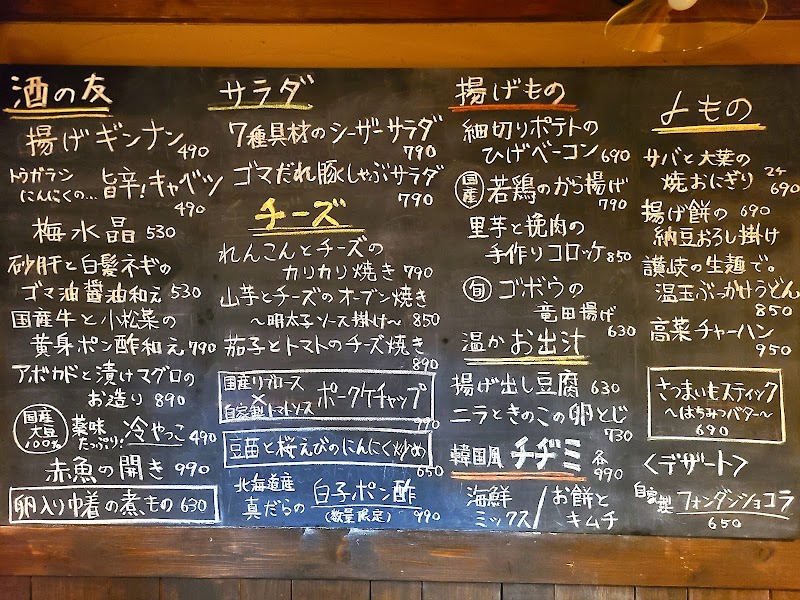 酒の友
揚げギンナン 490
トウガラシ
にんにくの… 旨辛!キャベツ
490
梅水晶 530
砂肝と白髪ネギの
ゴマ油醤油和え 530
国産牛と小松菜の
黄身ポン酢和え 790
アボカドと漬けマグロの
お造り 890
国産大豆100% 薬味たっぷり! 冷やっこ 490
赤魚の開き 990
卵入り巾着の煮もの 630
サラダ
7種具材のシーザーサラダ
790
ゴマだれ豚しゃぶサラダ
790
チーズ
れんこんとチーズの
カリカリ焼き 790
山芋とチーズのオーブン焼き
〜明太子ソース掛け〜 850
茄子とトマトのチーズ焼き
890
国産リブロース
×
自家製トマトソース ポークケチャップ
990
豆苗と桜えびのにんにく炒め
650
北海道産
真だらの 白子ポン酢
(数量限定) 990
揚げもの
細切りポテトの
ひげベーコン 690
国産 若鶏のから揚げ
790
里芋と挽肉の
手作りコロッケ 850
旬 ゴボウの
竜田揚げ
630
温かお出汁
揚げ出し豆腐 630
ニラときのこの卵とじ
730
韓国風 チヂミ 各
990
海鮮
ミックス/お餅と
キムチ
〆もの
サバと大葉の
焼おにぎり 2ケ
690
揚げ餅の 690
納豆おろし掛け
讃岐の生麺で。
温玉ぶっかけうどん
850
高菜チャーハン
950
さつまいもスティック
〜はちみつバター〜
690
<デザート>
自家製 フォンダンショコラ
650